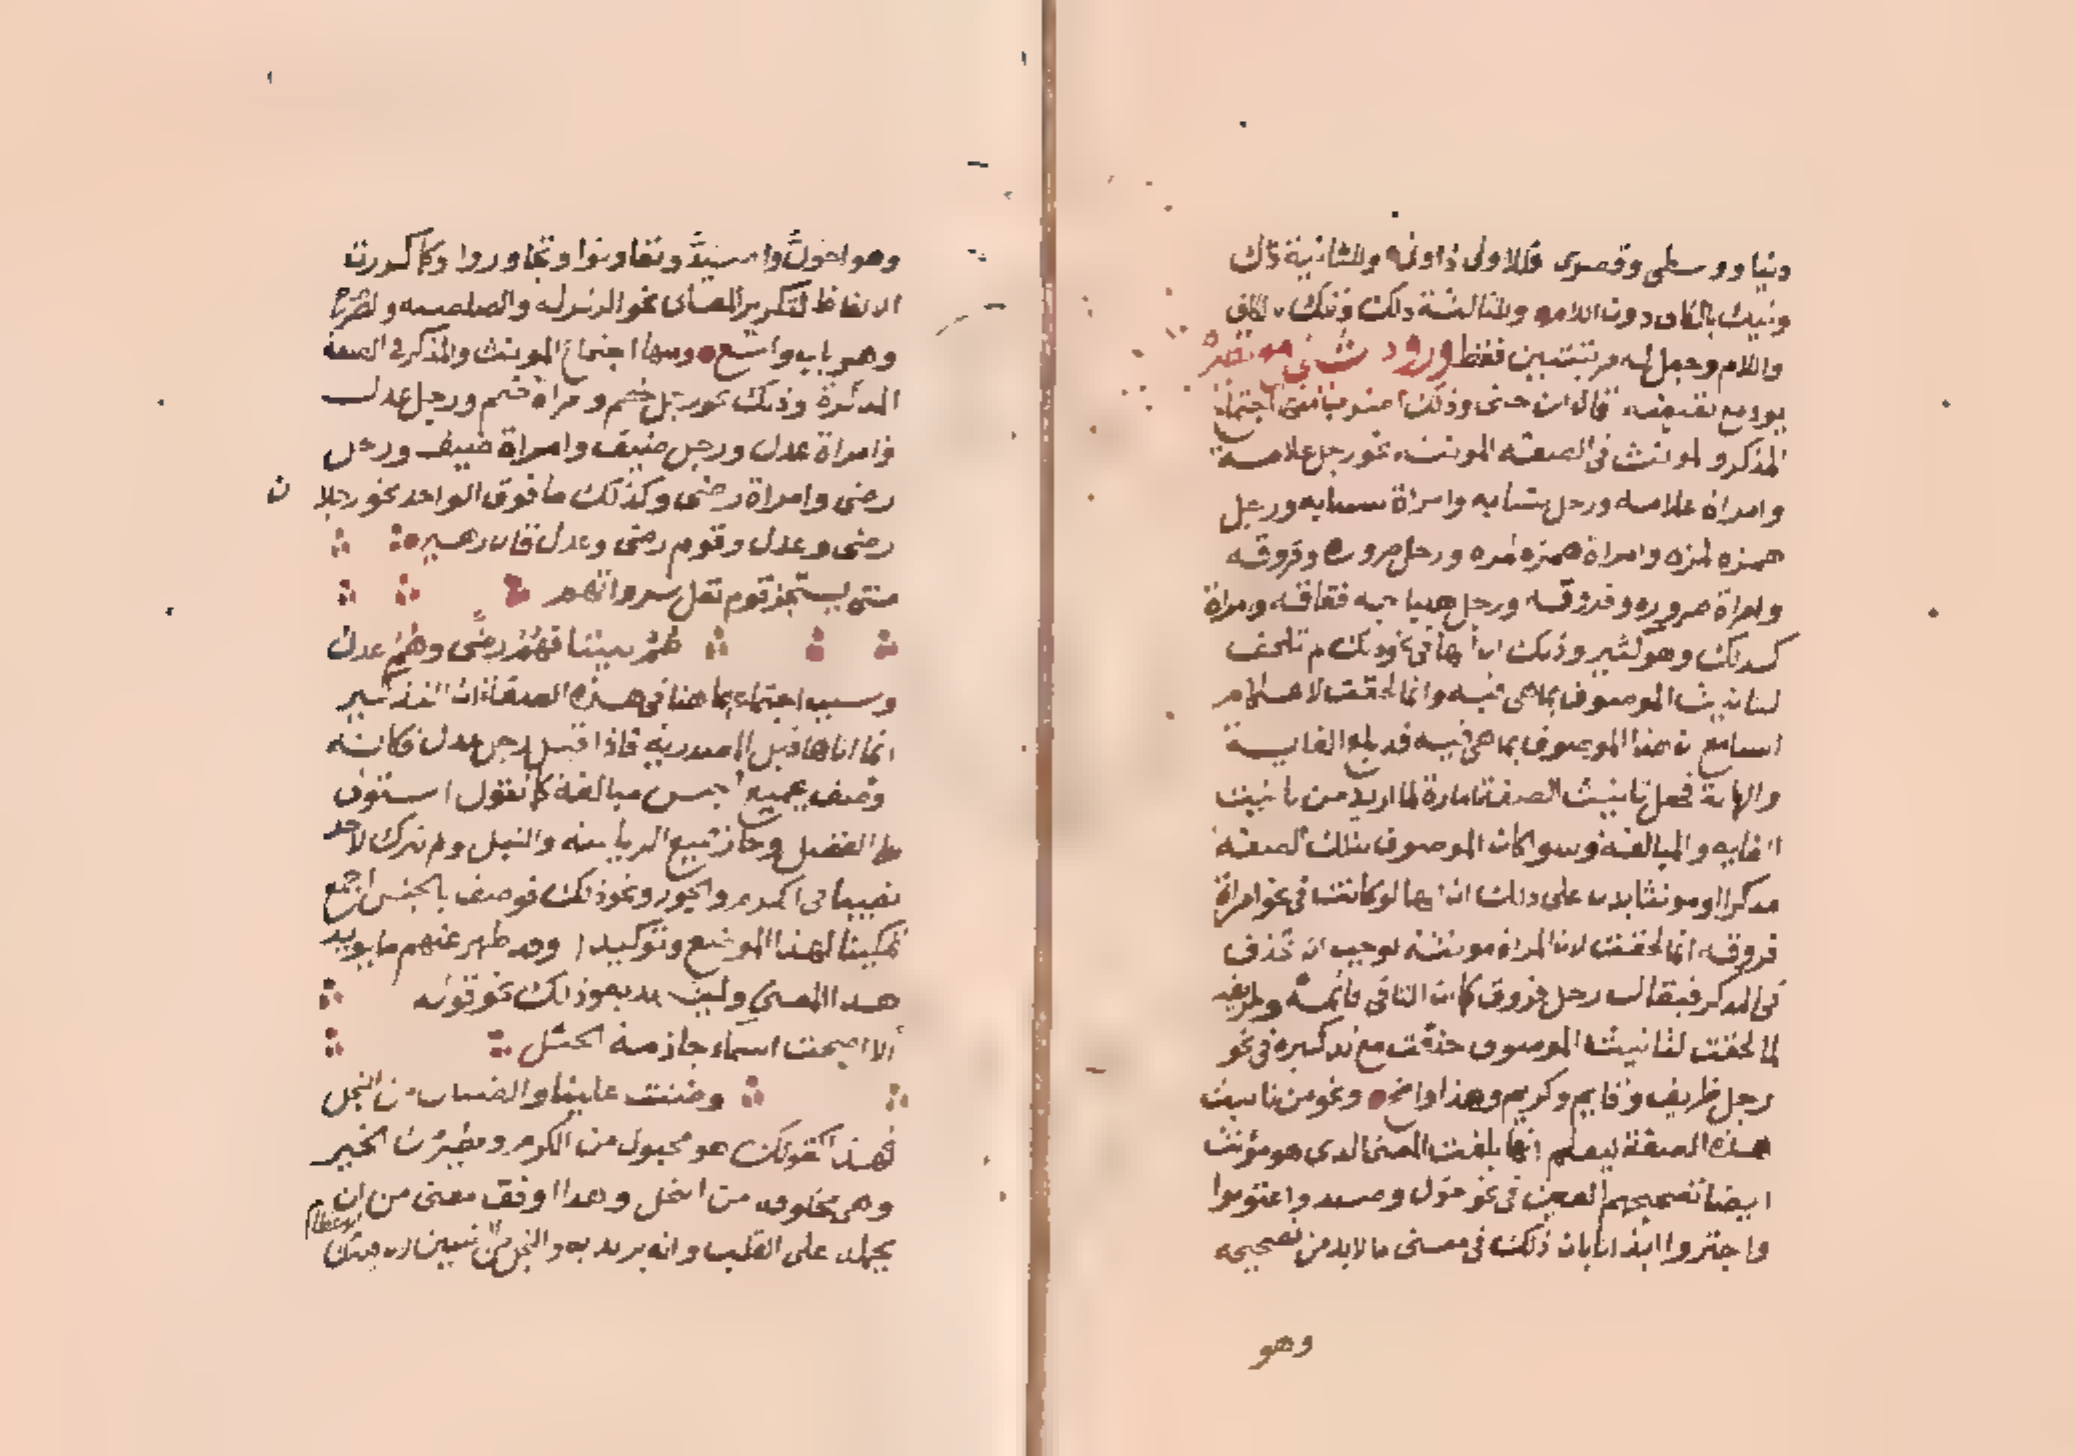 دنيا ووسطى وقصوى فللاولى ذا وتى وللثانية ذاك
وتيك بالكاف دون اللام وللثالثة ذلك وتلك بالكاف
واللام وجعل له مرتبتين فقط ورود شئ مع نظيره
مورده مع نقيضه قال ابن جنى وذلك اضرب منها اجتماع
المذكر والمونث فى الصفه المونثه نحو رجل علامة
وامراة علامه ورجل نسابه وامراة نسابه ورجل
همزه لمزه وامراة همزه لمزه ورجل صروره وفروقه
وامراة صروره وفروقه ورجل هلباجه فقاقه وامراة
كذلك وهو كثير وذلك ان الهاء فى نحو ذلك لم تلحق
لتانيث الموصوف بما هى فيه وانما لحقت لاعلام
السامع ان هذا الموصوف بما هى فيه قد بلغ الغاية
والنهاية فجعل تانيث الصفة امارة لما اريد من تانيث
الغايه والمبالغة وسوا كان الموصوف بتلك الصفة
مذكرا او مونثا يدل على ذلك ان الهاء لو كانت فى نحو امراة
فروقه انما لحقت لان المراة مونثة لوجب ان تحذف
فى المذكر فيقال رجل فروق كما ان التا فى قائمة وظريفه
لما لحقت لتانيث الموصوف حذفت مع تذكيره فى نحو
رجل ظريف وقايم وكريم وهذا واضح ونحو من تانيث
هذه الصفة ليعلم انها بلغت المعنى الذى هو مؤنث
ايضا تصحيحهم العين فى نحو حول وصيد واعتونوا
واجتوروا ايذانا بان ذلك فى معنى ما لابد من تصحيحه
وهو
وهو احول واصيد وتعاونوا وتجاوروا وكما كررت
الالفاظ لتكرير المعانى نحو الزلزله والصلصله والصرصرة
وهو باب واسع ومنها اجتماع المونث والمذكر فى الصفة
المذكرة وذلك نحو رجل خصم وامراة خصم ورجل عدل
وامراة عدل ورجل ضيف وامراة ضيف ورجل
رضى وامراة رضى وكذلك ما فوق الواحد نحو رجلان
رضى وعدل وقوم رضى وعدل قال زهير
متى يستجر قوم تقل سرواتهم
هم بيننا فهم رضى وهم عدل
وسبب اجتماعهما هنا فى هذه الصفة ان التذكير
انما اتاها من قبل المصدرية فاذا قيل رجل عدل فكانه
وصف بجميع الجنس مبالغة كما تقول استولى
على الفضل وحاز جميع الرياسه والنبل ولم يترك لاحد
نصيبا فى الكرم والجود ونحو ذلك فوصف بالجنس اجمع
تمكينا لهذا الموضع وتوكيدا وقد ظهر عنهم ما يويد
هذا المعنى وليشهد به وذلك نحو قوله
ألا اصبحت اسماء جاذمة الحبل
وضنت علينا والضنين من البخل
فهذا كقولك هو مجبول من الكرم ومطين من الخير
وهى مخلوقه من البخل وهذا اوفق معنى من ان
يحمله على القلب وانه يريد به والبخل من الضنين لان فيه من الاعظام